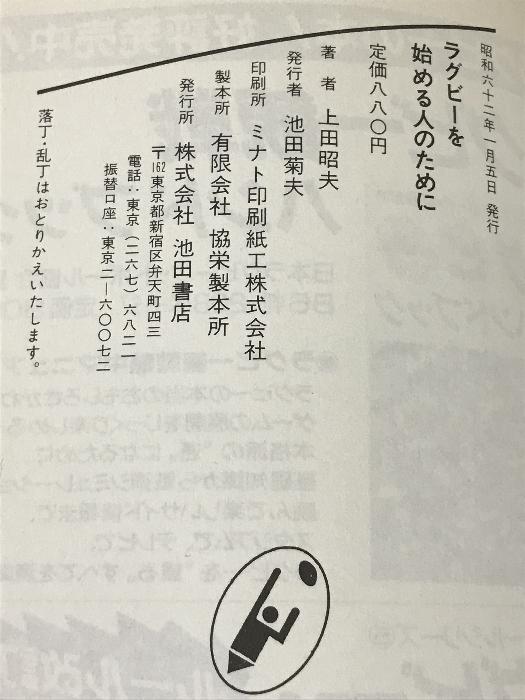 昭和六十二年一月五日 発行
ラグビーを
始める人のために
定価八八〇円
著者 上田昭夫
発行者 池田菊夫
印刷所 ミナト印刷紙工株式会社
製本所 有限会社 協栄製本所
発行所 株式会社 池田書店
〒162東京都新宿区弁天町四三
電話：東京（二六七）六八二一
振替口座：東京二―六〇〇七二
落丁・乱丁はおとりかえいたします。